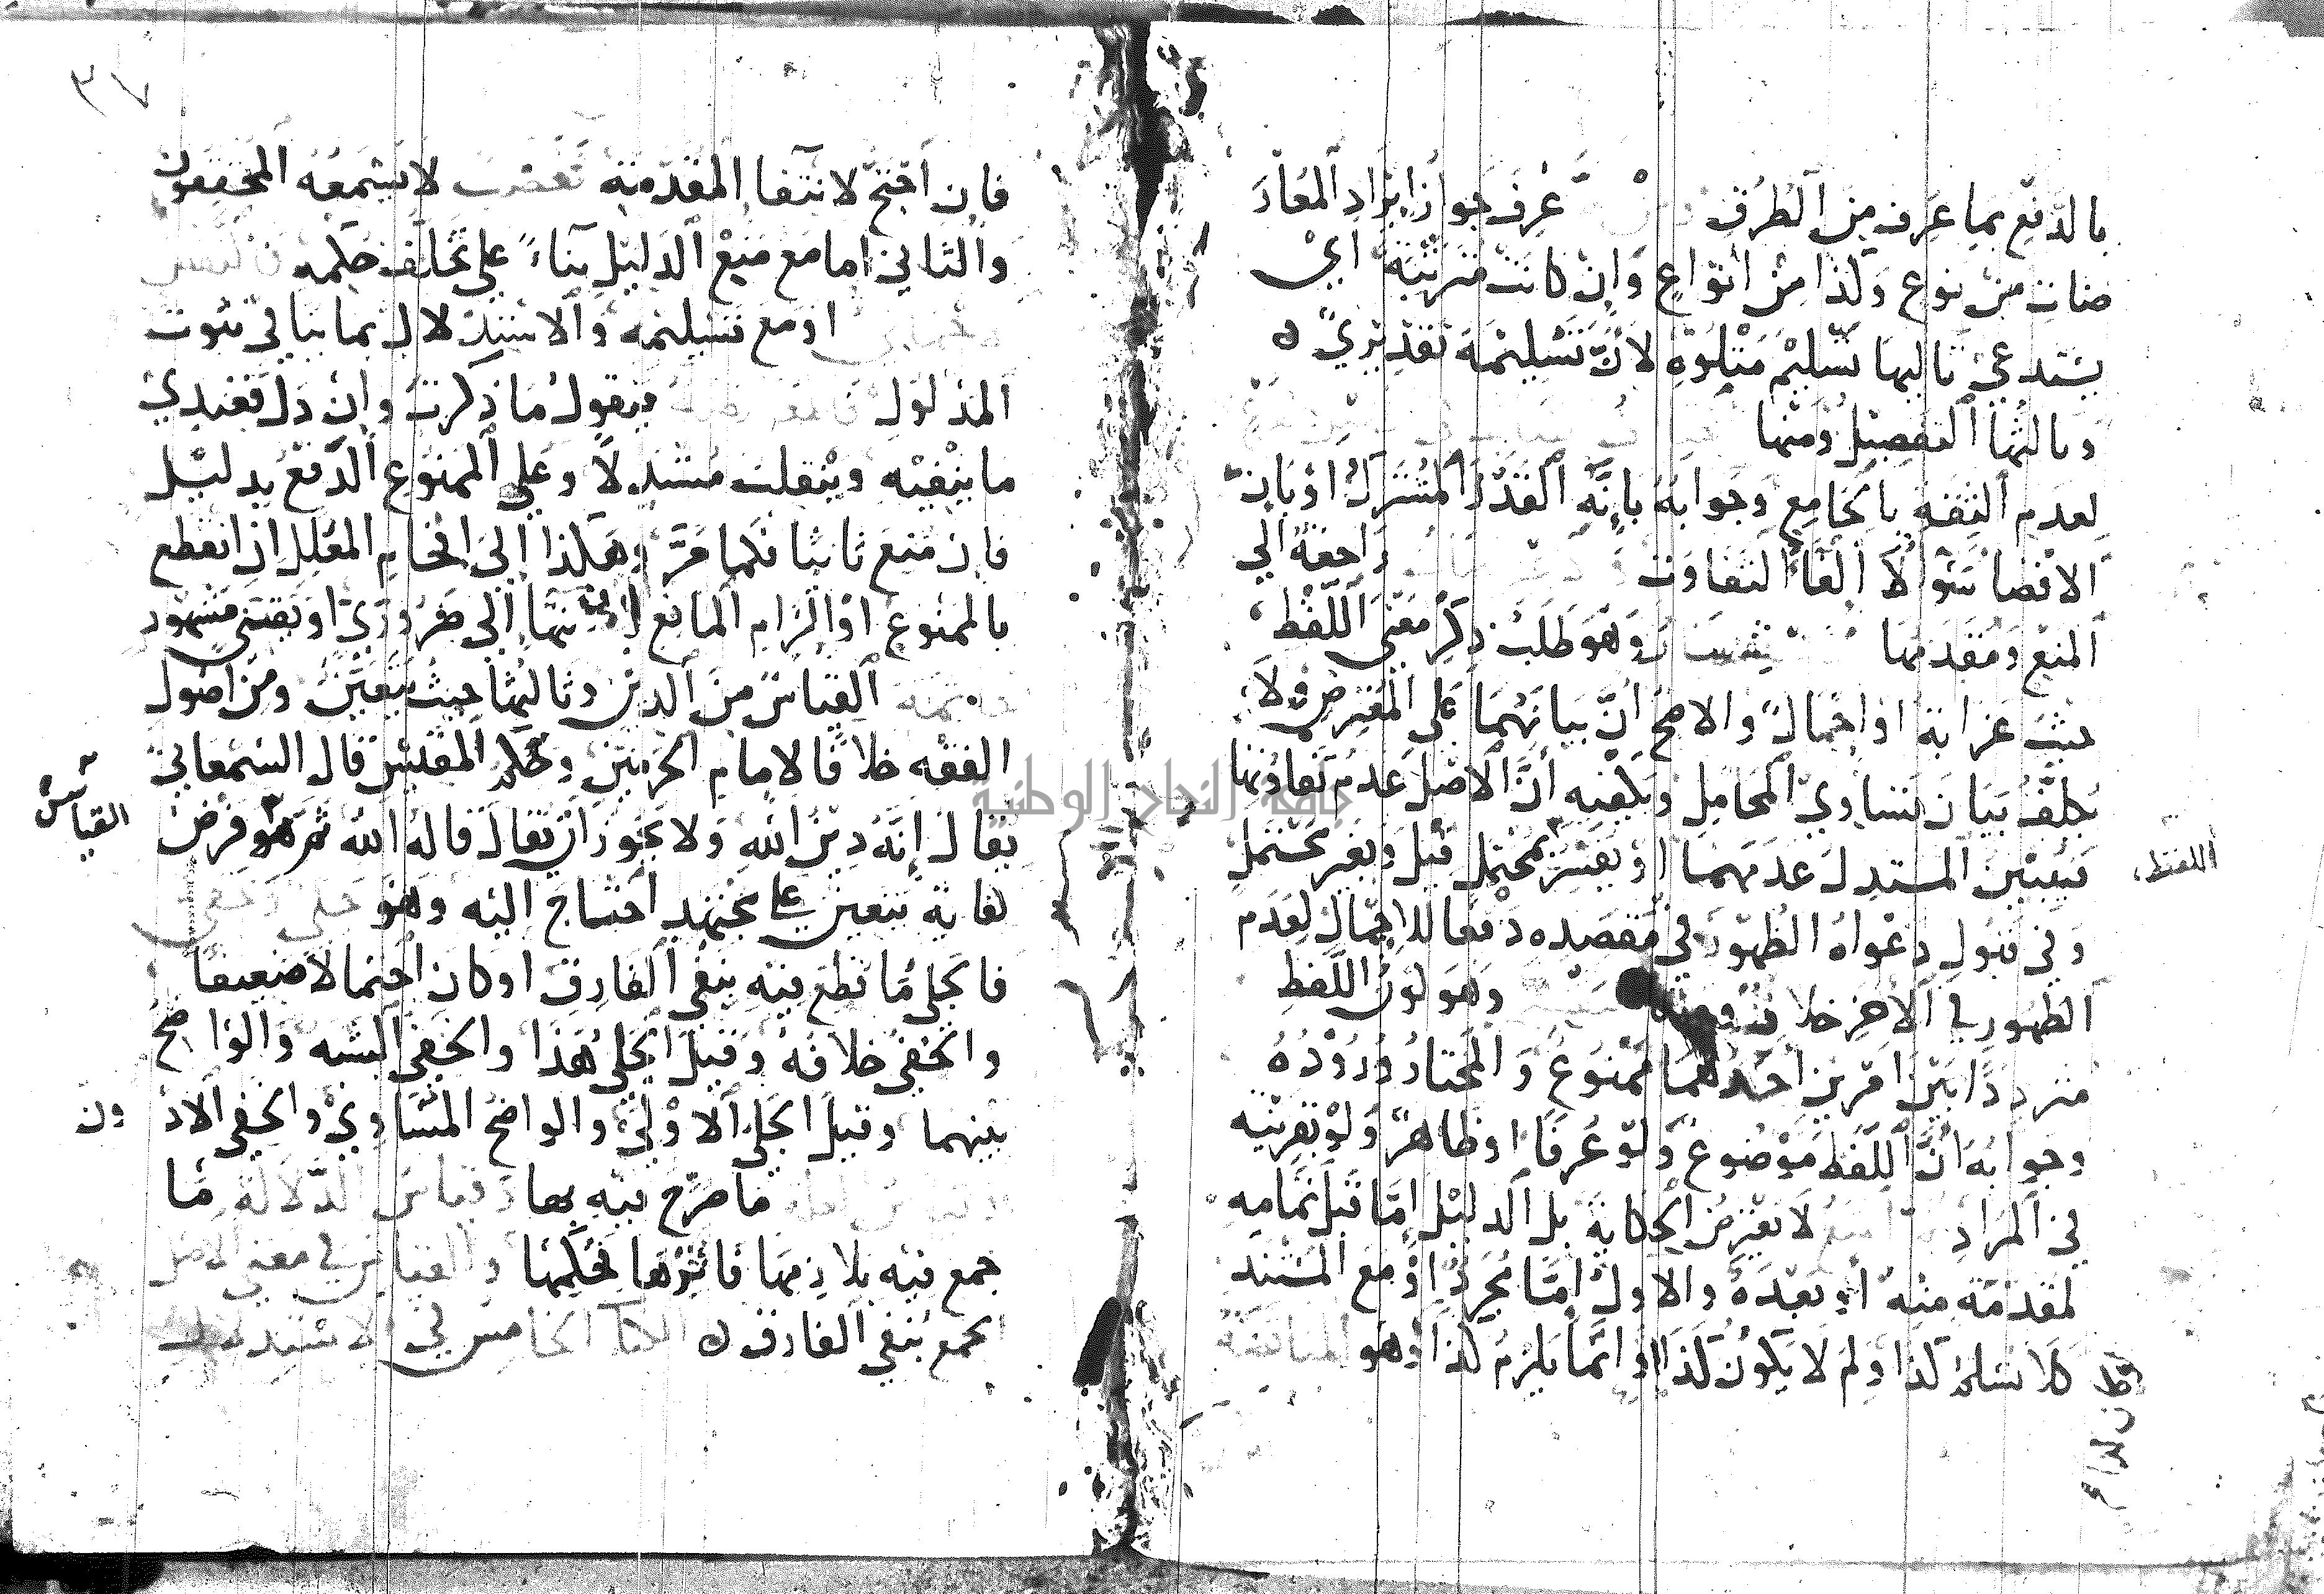 بالدفع بما عرف من الطرف عرف جواز ايراد المعارَ
ضات من نوع وكذا من انواع وان كانت مترتبة اي
يستدعي تاليها تسليم متلوه لان تسليمه تقديري
وثالثها التفصيل ومنها
لعدم الثقة بالجامع وجوابه بانه القدر المشترك او بان
الافضا سوا لا الغا التفاوت راجعة الي
المنع ومقدمها وهو طلب ذكر معني اللفظ
حيث غرابة او اجمال والاصح ان بيانهما علي المعترض ولا
يكلف بيان تساوي المحامل ويكفيه ان الاصل عدم تفاوتها
فيبين المستدل عدمهما او يفسر بمحتمل قيل وبغير محتمل
اللفظ
وفي قبول دعواه الظهور في مقصده دفعا للاجمال لعدم
الظهور في الاخر خلاف ومنها وهو كون اللفظ
مترددا بين امرين احدهما ممنوع والمختار وروده
وجوابه ان اللفظ موضوع ولو عرفا او ظاهر ولو بقرينة
في المراد لا يعترض الحكاية بل الدليل اما قبل تمامه
لمقدمة منه او بعده والاول اما مجرد او مع المستند
كلا نسلم كذا ولم لا يكون كذا او انما يلزم كذا وهو المناقضة
فان احتج لانتفا المقدمة فغصب لا يسمعه المحققون
والثاني اما مع منع الدليل بناء علي تخلف حكمه
او مع تسليمه والاستدلال بما ينافي ثبوت
المدلول فيقول ما ذكرت وان دل فعندي
ما ينفيه وينقلب مستدلا وعلي الممنوع الدفع بدليل
فان منع ثانيا فكما مر وهكذا الي افحام المعلل ان انقطع
بالممنوع او الزام المانع ان انتهي الي ضروري او يقيني مشهور
القياس من الدين وثالثها حيث يتعين ومن اصول
الفقه خلافا لامام الحرمين وحكم المقيس قال السمعاني
يقال انه دين الله ولا يجوز ان يقال قاله الله ثم هو فرض
القياس
كفاية يتعين علي مجتهد احتاج اليه وهو جلي وخفي
فالجلي ما قطع فيه بنفي الفارق او كان احتمالا ضعيفا
والخفي خلافه وقيل الجلي هذا والخفي الشبه والواضح
بينهما وقيل الجلي الاولي والواضح المساوي والخفي الادون
ما صرح فيه بها وقياس الدلالة ما
جمع فيه بلازمها فاثرها فحكمها والقياس في معني الاصل
الجمع بنفي الفارق الكتاب الخامس في الاستدلال
جامعة النجاح الوطنية